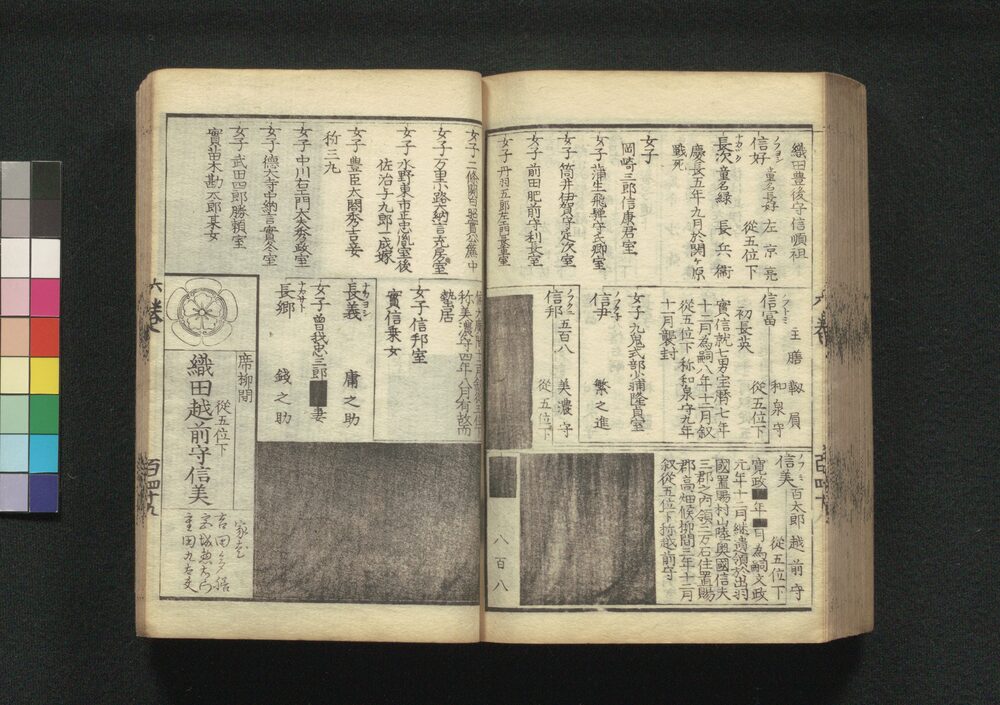 織田豊後守信順祖
信好 童名長好 左京亮
從五位下
長次 童名緑 長兵衞
慶長五年九月於関ヶ原
戰死
女子
岡崎三郎信康君室
女子 蒲生飛騨守氏郷室
女子 筒井伊賀守定次室
女子 前田肥前守利長室
女子 丹羽五郎左エ門長重室
信冨 主膳 靱負
初長英 和泉守
從五位下
實信就七男宝暦七年
十二月為嗣八年十二月叙
從五位下称和泉守九年
十一月襲封
女子 九鬼式部少浦隆貞室
信尹 繁之進
信邦 五百八 美濃守
從五位下
信美 百太郎 越前守
從五位下
寛政 年 月為嗣文政
元年十二月継遺領於出羽
國置賜村山陸奥國信夫
三郡之内領二万石住置賜
郡高畑候柳間三年十二月
叙從五位下称越前守
八百八
六巻
百四十九
女子 二條関白昭實公簾中
女子 万里小路大納言充房室
女子 水野東市正忠胤室後
佐治与九郎一成嫁
女子 豊臣太閤秀吉妾
称三丸
女子 中川右エ門大夫秀政室
女子 德大寺中納言實冬室
女子 武田四郎勝頼室
實苗木勘太郎某女
称美濃守四年八月有故而
蟄居
女子 信邦室
實信栄女
長義 庸之助
女子 曽我忠三郎 妻
長郷 錢之助
席柳間
從五位下
織田越前守信美
家老
吉田多膳
重田九左衛
六巻
百四十九